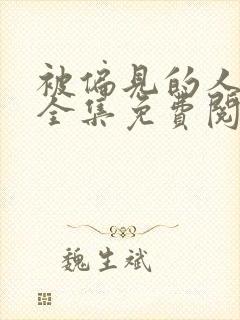 被偏见的人
全集免费阅
魏生斌